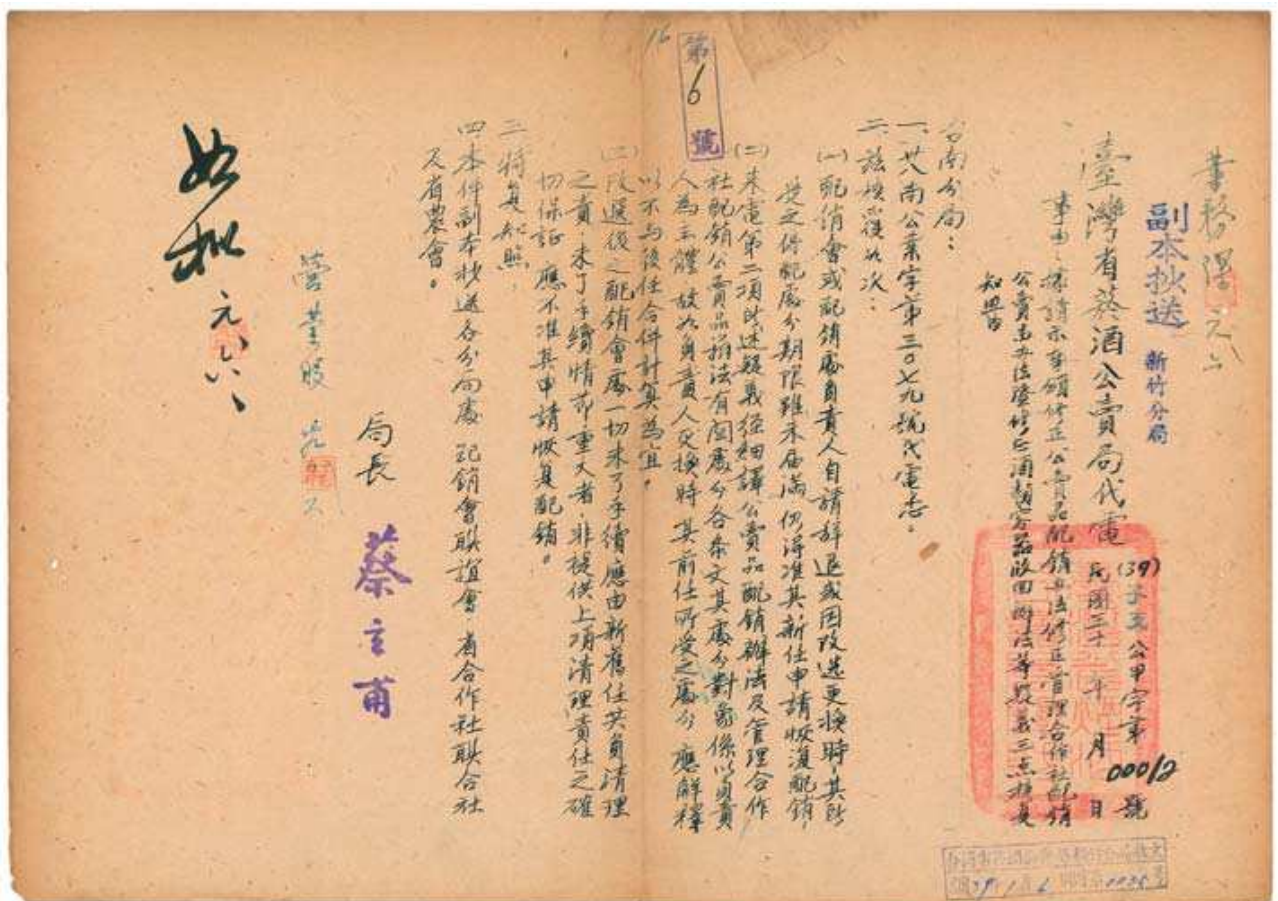 業務課
副本抄送 新竹分局
臺灣省菸酒公賣局代電
(39)子支公甲字第00012號
民國三十 年 月 日
事由:據請示本頒修正公賣品配銷辦法修正管理合作社配銷
公賣品辦法暨修正酒類容器收回辦法等疑義三点核復
知照由
台南分局:
一、廿八南公業字第三〇七九號代電悉。
二、茲核復如次:
(一)配銷會或配銷處負責人自請辭退或因改選更換時,其所
受之停配處分期限雖未屆滿仍得准其新任申請恢復配銷,
(二)來電第二項所述疑義經細譯公賣品配銷辦法及管理合作
社配銷公賣品辦法有関處分各条文其處分對象係以負責
人為主體 故如負責人更換時 其前任所受之處分 應解釋
以不与後任合併計算為宜。
(三)改選後之配銷會處一切未了手續應由新舊任共負清理
之責 未了手續情節重大者,非提供上項清理責任之確
切保証 應不准其申請恢复配銷。
三、特复知照。
四、本件副本抄送各分局處 配銷會联誼會 省合作社联合社
及省農會。
局長 蔡玄甫
營業股
如批 元六、
第6號
16